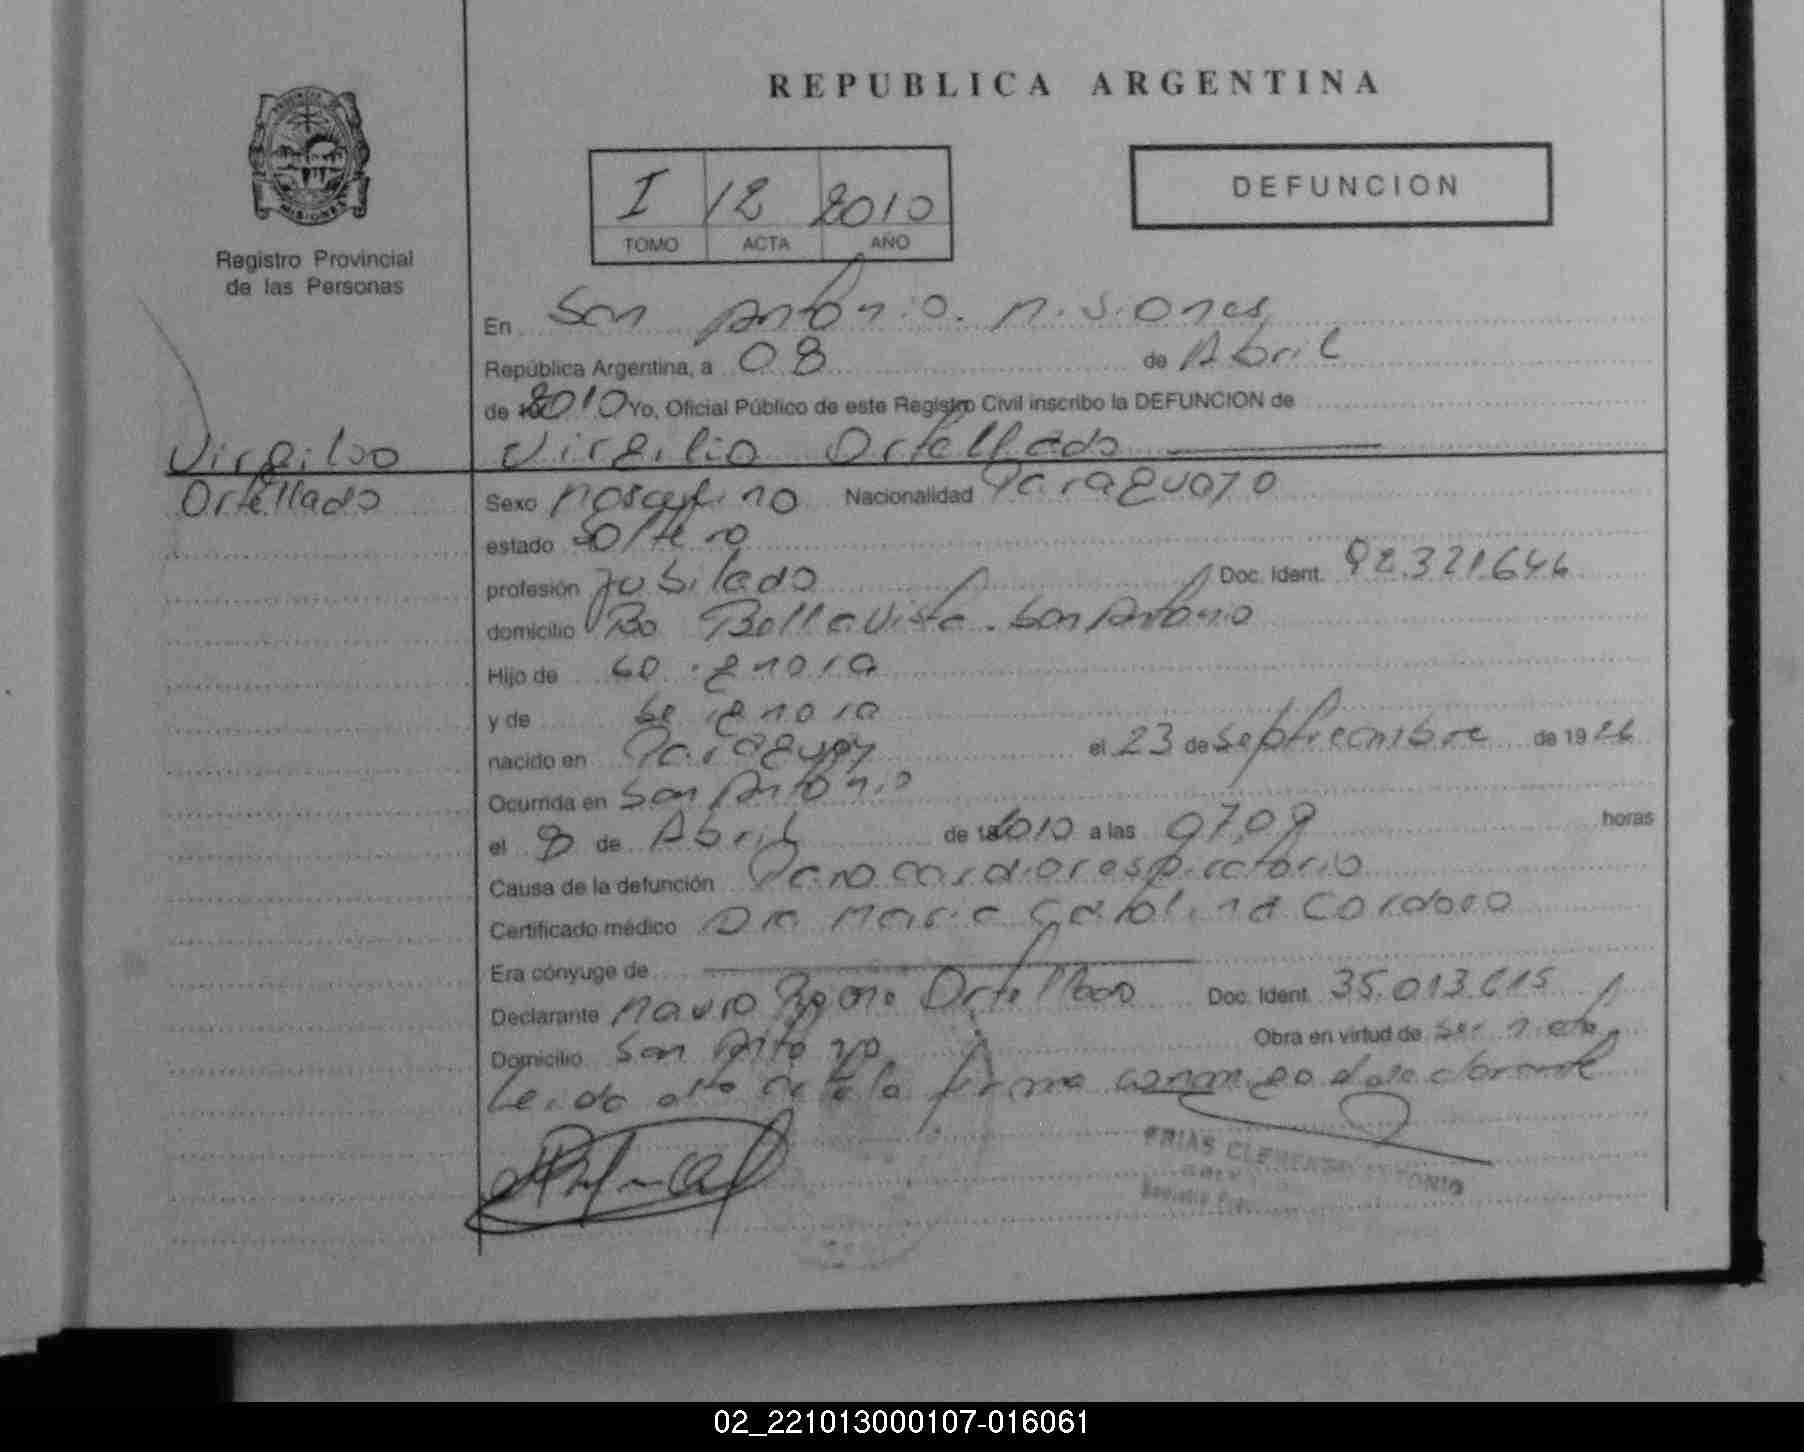 REPUBLICA ARGENTINA
MISIONES
Registro Provincial
de las Personas
I 12 2010
TOMO ACTA AÑO
DEFUNCION
En San Antonio. Misiones
República Argentina, a 08 de Abril
de 2010 Yo, Oficial Público de este Registro Civil inscribo la DEFUNCION de
Virgilio Ortellado
Virgilio
Ortellado
Sexo Masculino Nacionalidad Paraguayo
estado Soltero
profesión Jubilado Doc. Ident. 92.321.646
domicilio Bo Bella Vista. San Antonio
Hijo de se ignora
y de se ignora
nacido en Paraguay el 23 de Septiembre de 1926
Ocurrida en San Antonio
el 8 de Abril de 2010 a las 07,09 horas
Causa de la defunción Paro cardiorespiratorio
Certificado médico Dra Maria Carolina Cordoso
Era cónyuge de
Declarante Mauro Ortellado Doc. Ident. 35.013.615
Domicilio San Antonio Obra en virtud de ser nieto
Leida la firma conmigo el declarante
FRIAS CLEMENTE ANTONIO
02_221013000107-016061